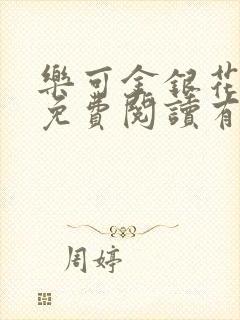 樂可金銀花
免費閱讀有
周婷